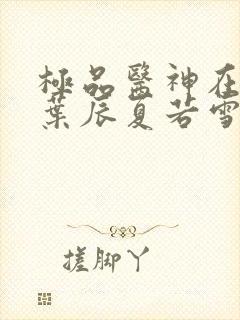 極品醫神在
葉辰夏若雪
搓腳丫